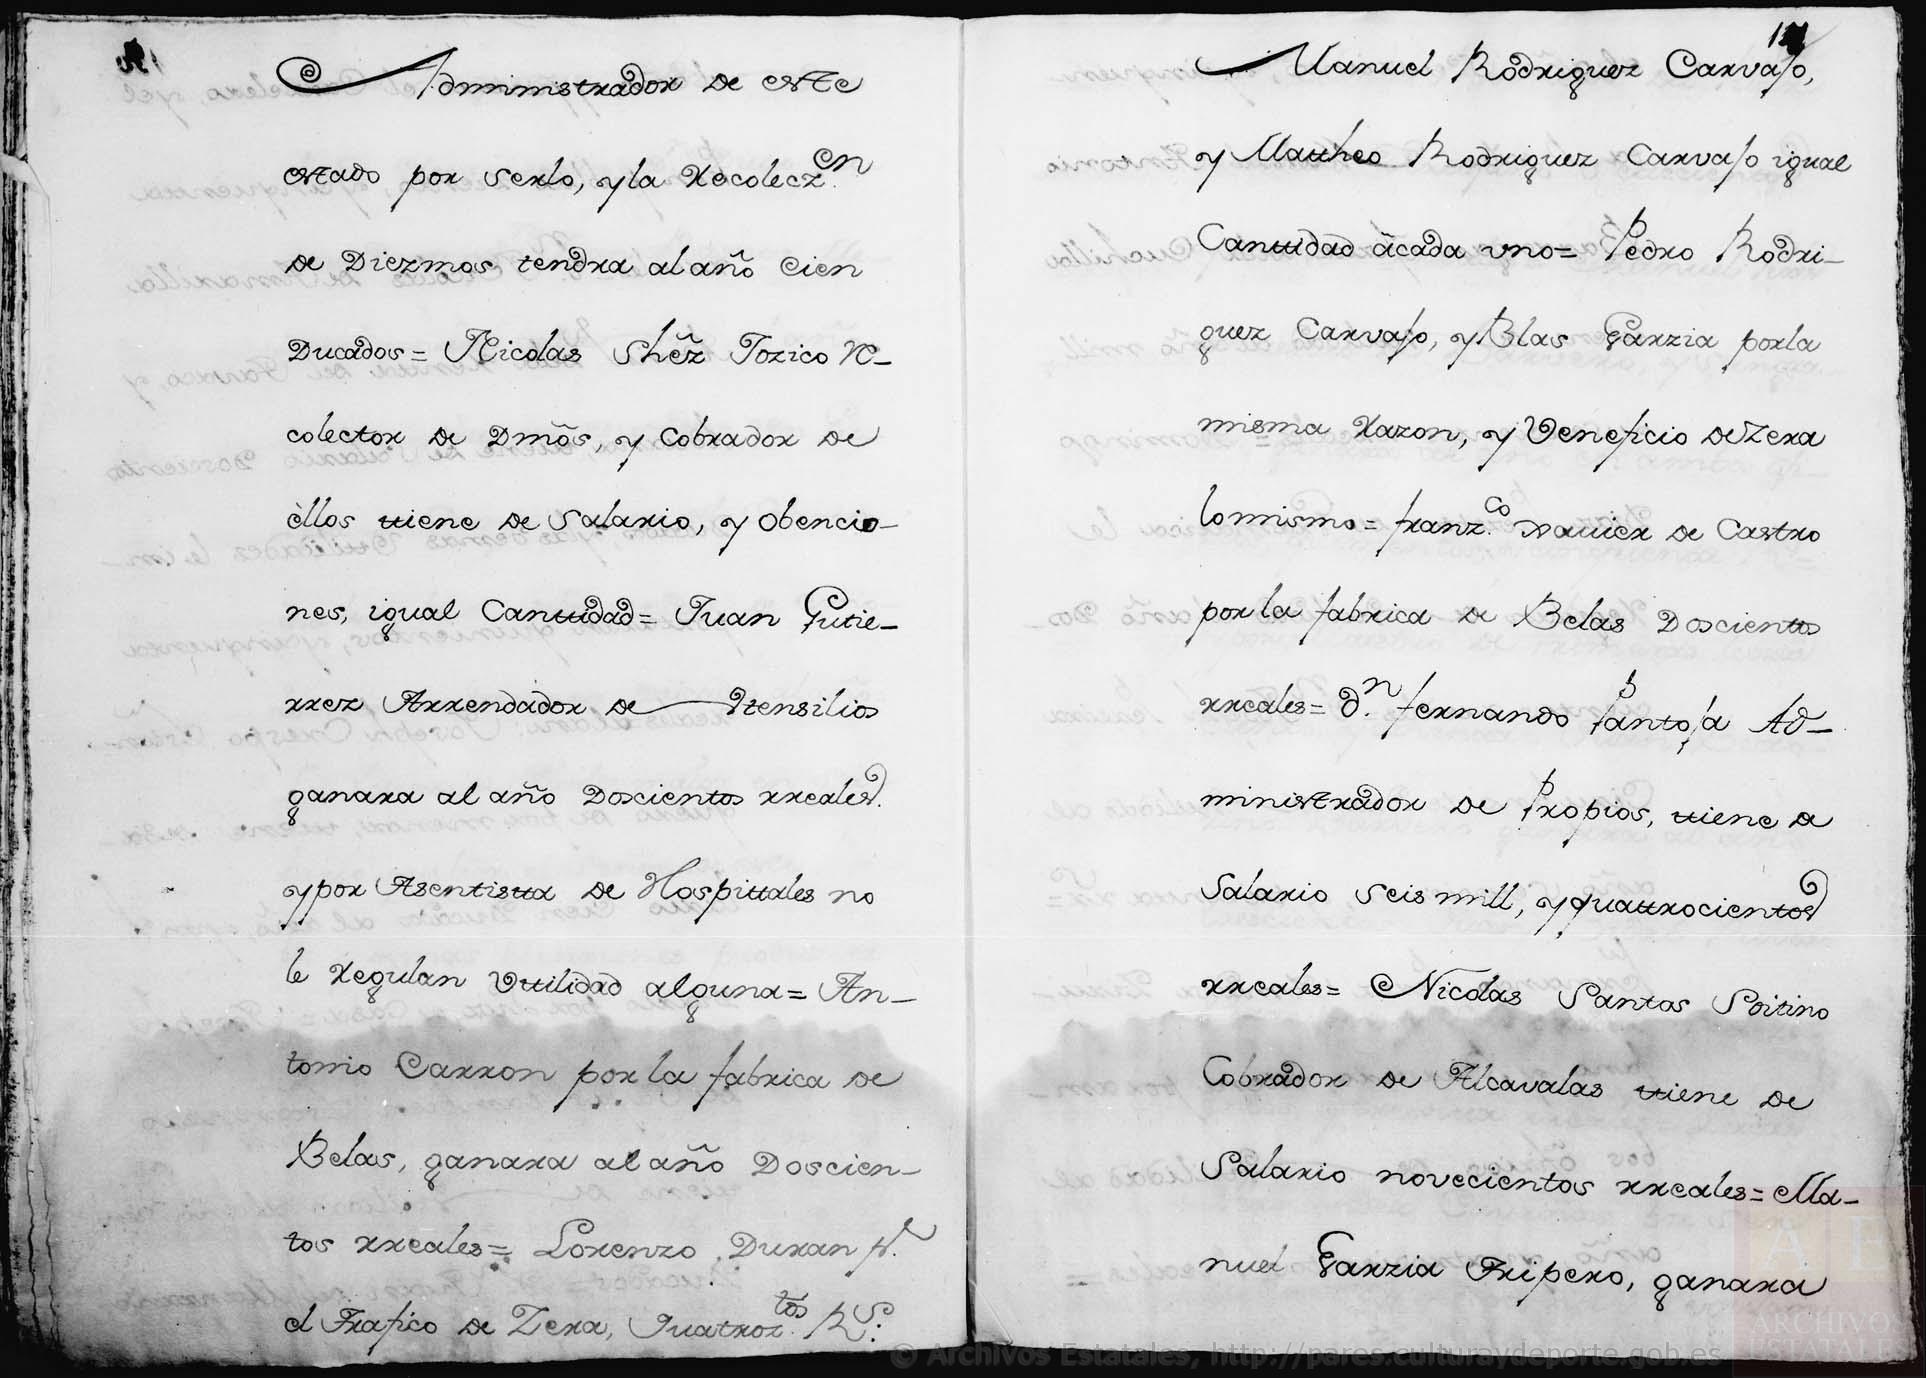 Administrador de este
estado por serlo, y la Recolecz.on
de Diezmos tendra al año Cien
Ducados = Nicolas Shẽz Tozico Re-
colector de Dmõs, y Cobrador de
èllos ttiene de Salario, y obencio-
nes, igual Canttidad = Juan Gutie-
rrez Arrendador de Vtensilios
ganara al año Doscientos rreales.
y por Asentistta de Hospittales no
le Regulan Vttilidad alguna = An-
tonio Carron por la fabrica de
Belas, ganara al año Doscien-
tos rreales = Lorenzo Duran p.r
el Trafico de Zera, Quatroz.tos R.s
Manuel Rodriguez Carvajo,
y Mattheo Rodriguez Carvajo igual
Canttidad â cada vno = Pedro Rodri-
guez Carvajo, y Blas Garzia por la
misma Razon, y Veneficio de Zera
lo mismo = franz.co Xavier de Castro
por la fabrica de Belas Doscienttos
rreales = D.n fernando Pantoja Ad-
ministrador de Propios, ttiene de
Salario seis mill, y quattrocientos
rreales = Nicolas Santos Poitino
Cobrador de Alcavalas ttiene de
Salario novecientos rreales = Ma-
nuel Garzia Tripero, ganara
© Archivos Estatales, http://pares.culturaydeporte.gob.es
A E
ARCHIVO
ESTATALE